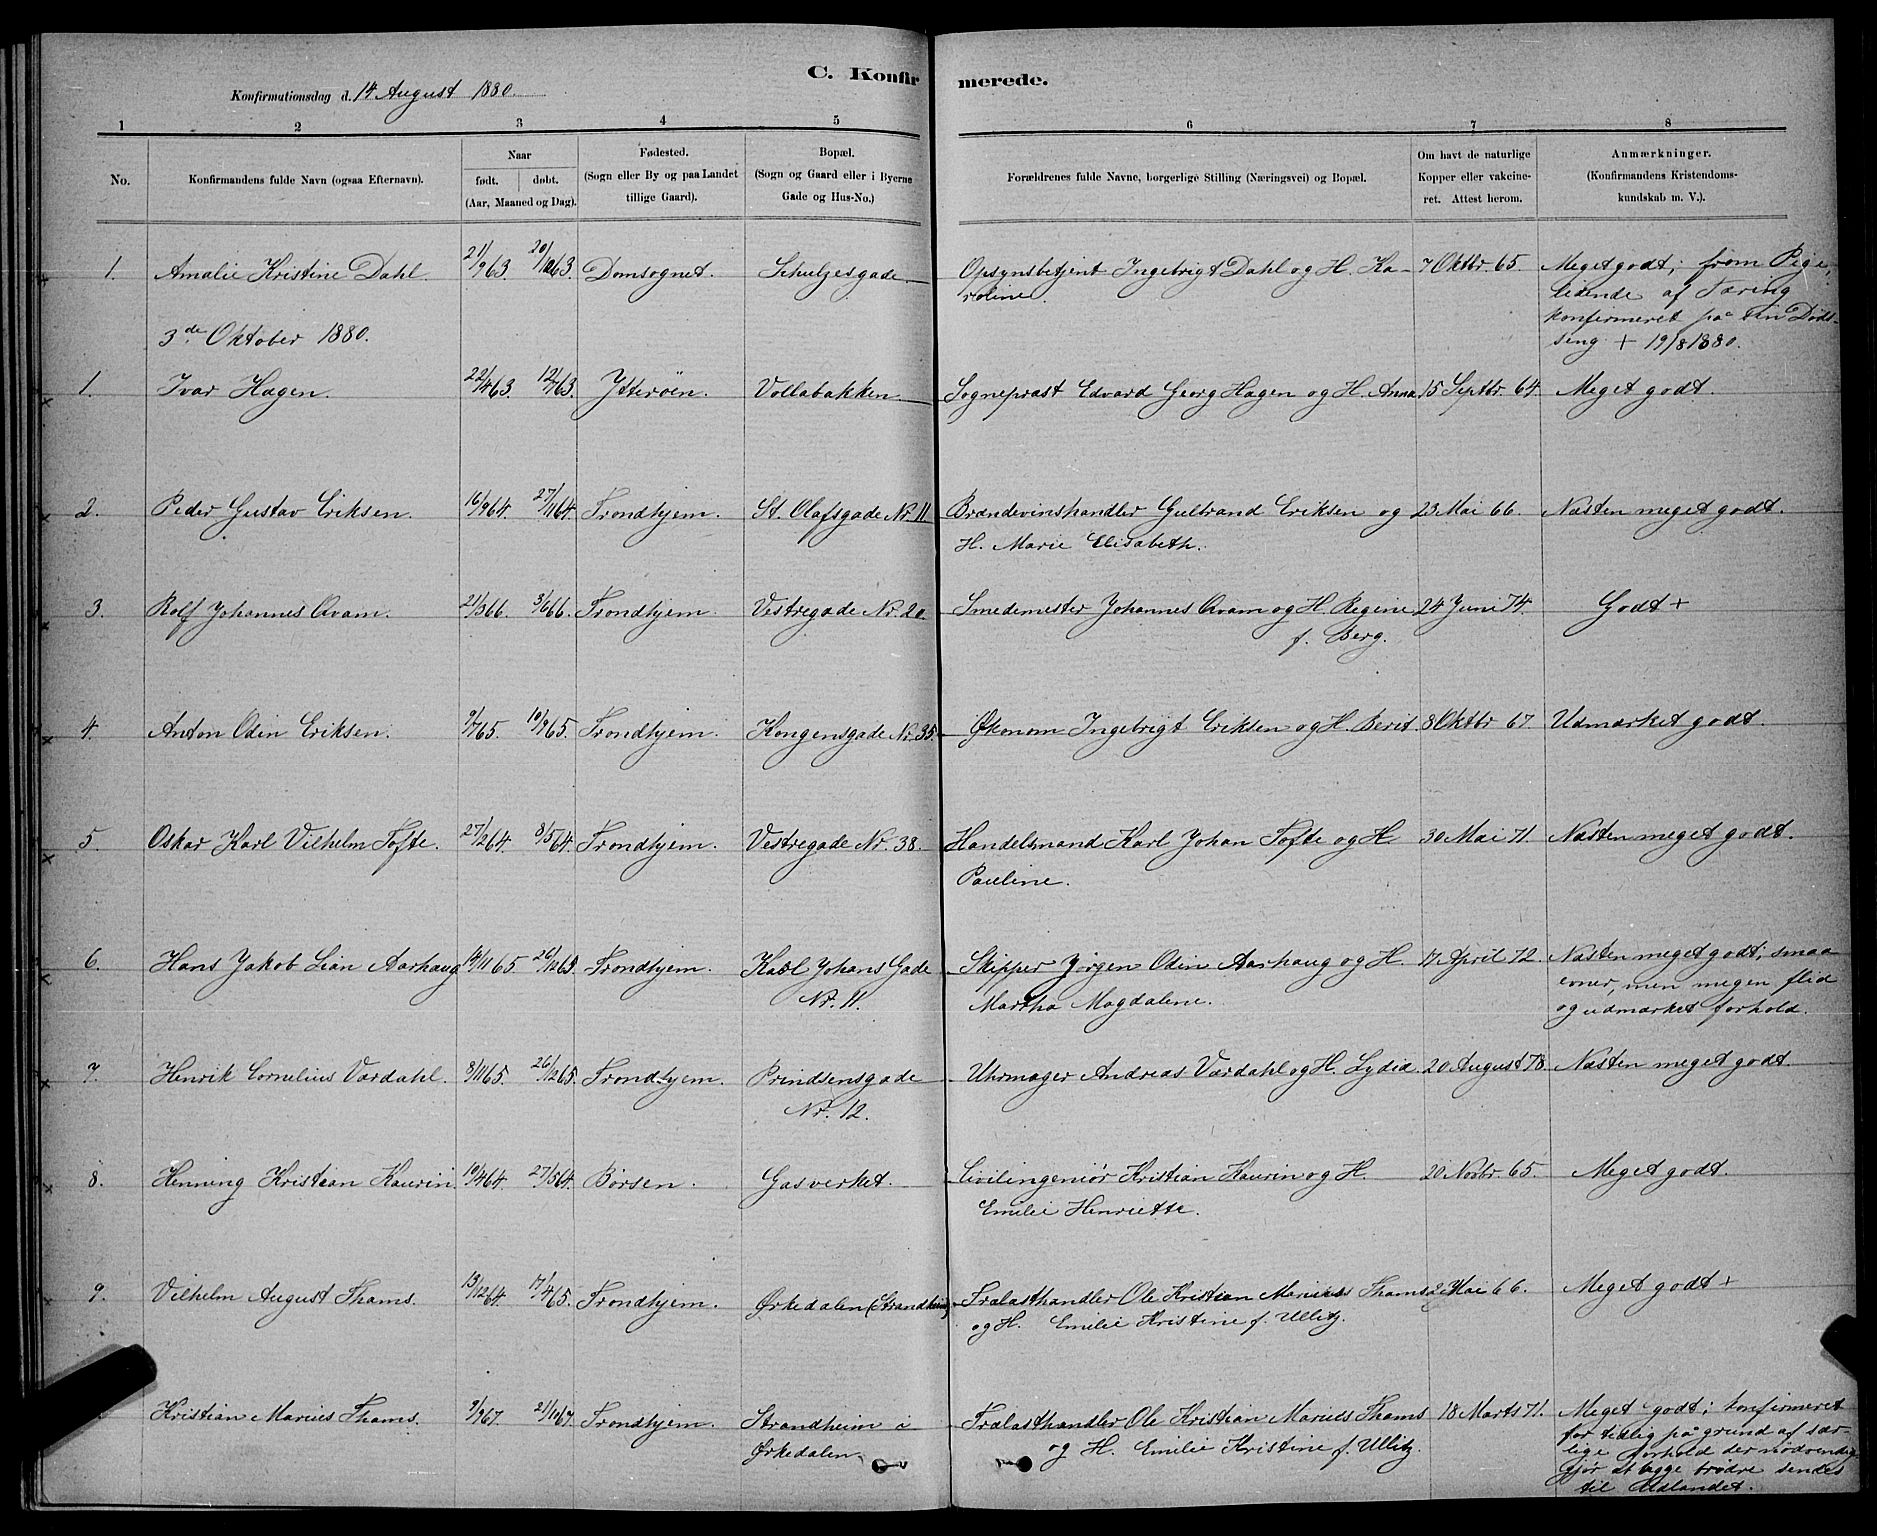 C. Konfirmerede.
Konfirmationsdag d. 14 August 1880.
1 2 3 4 5 6 7 8
No. Konfirmandens fulde Navn (ogsaa Efternavn). Naar født. døbt. (Aar, Maaned og Dag). Fødested. (Sogn eller By og paa Landet tillige Gaard). Bopæl. (Sogn og Gaard eller i Byerne Gade og Hus-No.) Forældrenes fulde Navne, borgerlige Stilling (Næringsvei) og Bopæl. Om havt de naturlige Kopper eller vakcineret. Attest herom. Anmærkninger. (Konfirmandens Kristendomskundskab m. V.).
1. Amalie Kristine Dahl 21/9 63. 20/10 63. Domsognet. Schulzesgade. Opsynsbetjent Ingebrigt Dahl og H. Ka- 7 Oktbr. 65. Meget godt; from Pige,
roline. lidende af Tæring
konfirmeret på sin Døds-
3de Oktober 1880. seng + 19/8 1880.
1. Ivar Hagen. 22/4 63. 12/7 63. Ytterøen. Vollabakken. Sogneprest Edvard Georg Hagen og H. Anna 15 Septbr. 64. Meget godt.
2. Peder Gustav Eriksen. 16/9 64. 27/11 64. Trondhjem. St. Olafsgade Nr. 11 Brændevinshandler Gulbrand Eriksen og 23 Mai 66. Næsten meget godt.
H. Marie Elisabeth.
3. Rolf Johannes Qvam. 21/3 66. 3/6 66. Trondhjem. Vestregade Nr. 20. Smedemester Johannes Qvam og H. Regine 24 Juni 74. Godt +
f. Berg.
4. Anton Odin Eriksen. 9/7 65. 10/9 65. Trondhjem. Kongensgade Nr. 35. Økonom Ingebrigt Eriksen og H. Berit. 8 Oktbr. 67. Udmærket godt.
5. Oskar Karl Vilhelm Tofte. 27/2 64. 8/5 64. Trondhjem. Vestregade Nr. 38. Handelsmand Karl Johan Tofte og H. 30 Mai 71. Næsten meget godt.
Pauline.
6. Hans Jakob Lian Aarhaug 14/11 65 26/12 65. Trondhjem. Karl Johans Gade Skipper Jørgen Odin Aarhaug og H. 17 April 72. Næsten meget godt; smaa
Nr. 11. Martha Magdalene. evner, men megen flid
og udmærket forhold.
7. Henrik Cornelius Værdahl. 8/11 65. 26/12 65. Trondhjem. Prindsensgade Uhrmager Andreas Værdahl og H. Lydia. 20 August 78. Næsten meget godt.
Nr. 12.
8. Henning Kristian Kaurin. 19/4 64. 27/5 64. Børsen. Gasverket. Civilingeniør Kristian Kaurin og H. 20 Novbr. 65. Meget godt.
Emilie Henriette.
9. Vilhelm August Thams. 13/12 64. 17/4 65. Trondhjem. Ørkedalen (Strandheim) Trælasthandler Ole Kristian Marius Thams 2 Mai 66. Meget godt +
og H. Emilie Kristine f. Ullitz.
Kristian Marius Thams. 9/9 67. 21/11 67. Trondhjem. Strandheim i Trælasthandler Ole Kristian Marius Thams 18 Marts 71. Meget godt; konfirmeret
Ørkedalen. og H. Emilie Kristine f. Ullitz. for tidlig på grund af sær-
lige forhold der nødvendig
gjør at begge brødre sendes
til Udlandet.